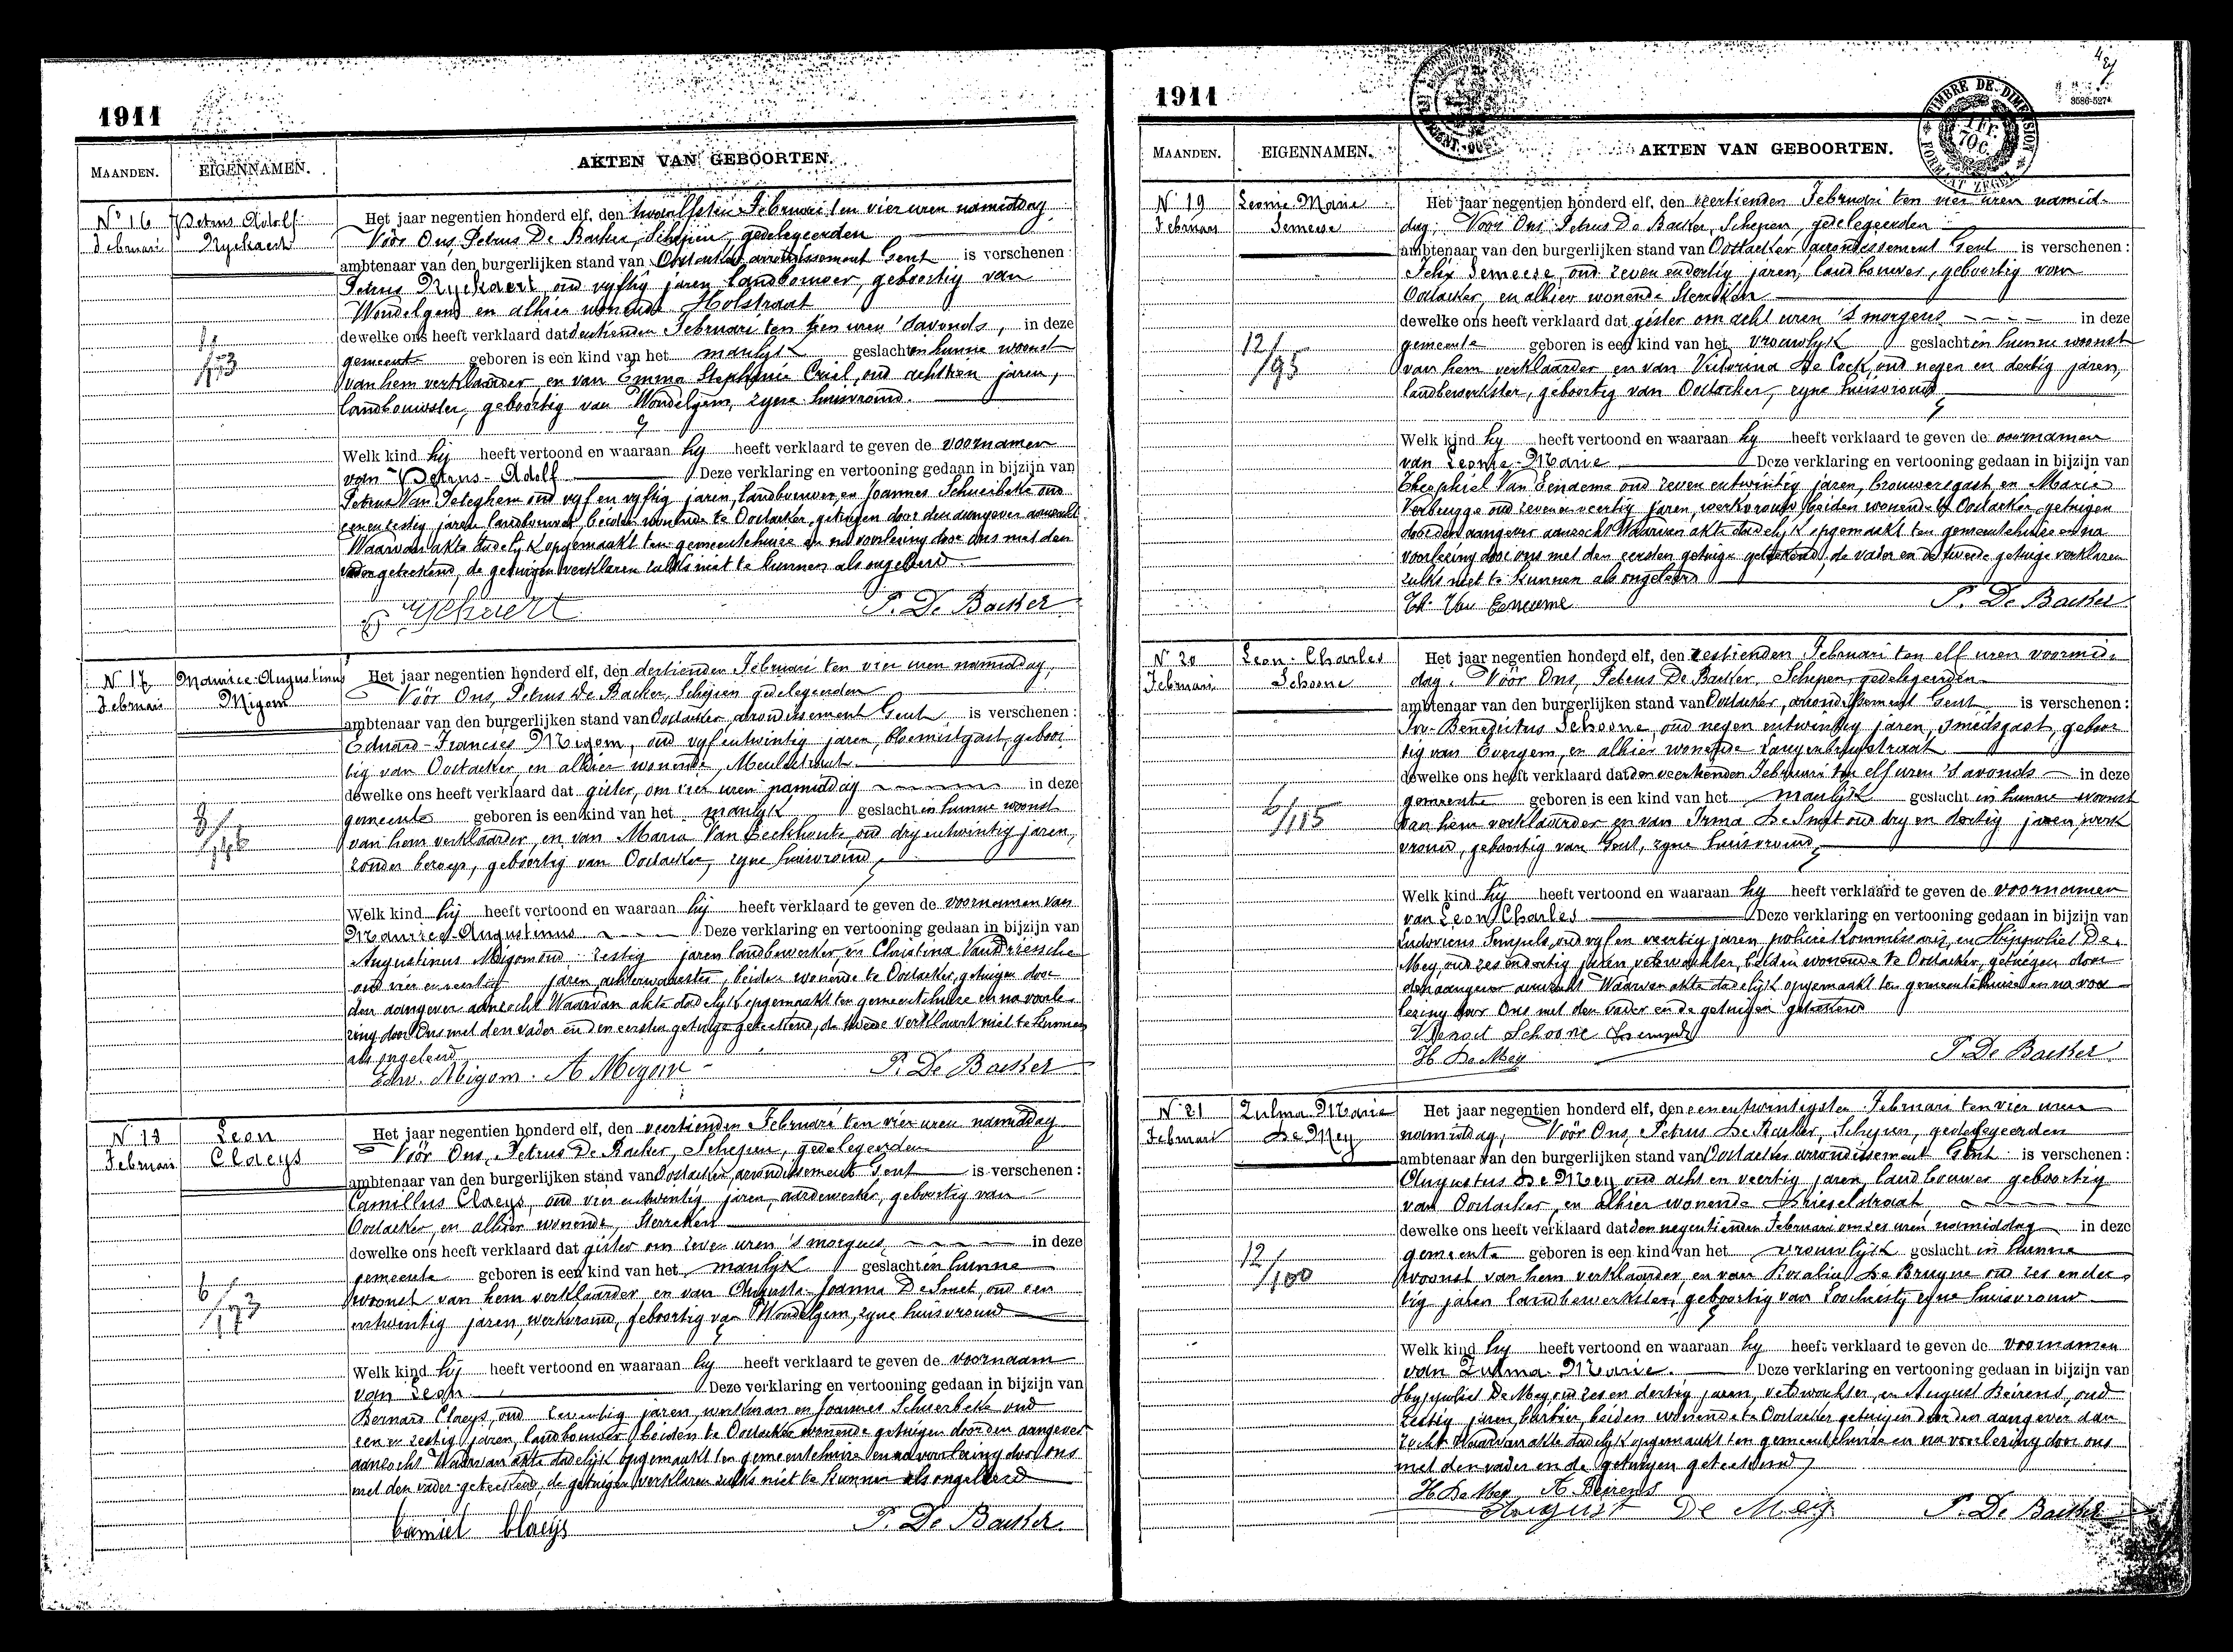 1911
MAANDEN.
EIGENNAMEN.
AKTEN VAN GEBOORTEN.
N° 16
Februari
Petrus Adolf
Ryckaert
Het jaar negentien honderd elf, den twaalfsten Februari ten vier uren namiddag
Vóór Ons, Petrus De Backer, Schepen, gedelegeerden
ambtenaar van den burgerlijken stand van Oostacker, arrondissement Gent is verschenen :
Petrus Ryckaert, oud vyftig jaren landbouwer, geboortig van
Wondelgem en alhier wonende Holstraat
dewelke ons heeft verklaard dat Februari ten tien uren 's avonds, in deze
gemeente geboren is een kind van het manlyk geslacht in hunne woonst
van hem verklaarder en van Emma Stephanie Criel, oud jaren,
landbouwster, geboortig van Wondelgem, zyne huisvrouw.
Welk kind hy heeft vertoond en waaraan hy heeft verklaard te geven de voornamen
van Petrus-Adolf Deze verklaring en vertooning gedaan in bijzijn van
Petrus Van Peteghem oud vyf en vyftig jaren, landbouwer en Joannes Schuerbeke oud
een en zestig jaren landbouwer beiden wonende te Oostacker, getuigen door den aangever aanzocht
Waarvan akte dadelyk opgemaakt ten gemeentehuize en na voorlezing door ons met den
vader geteekend, de getuigen verklaren zulks niet te kunnen als ongeleerd.
P Ryckaert P. De Backer
N 17
Februari
Maurice-Augustinus
Migom
Het jaar negentien honderd elf, den dertienden Februari ten vier uren namiddag,
Vóór Ons, Petrus De Backer, Schepen gedelegeerden
ambtenaar van den burgerlijken stand van Oostacker arrondissement Gent is verschenen :
Eduard-Francies Migom, oud vyf entwintig jaren, bloemistgast, geboor
tig van Oostacker, en alhier wonende, Meulestraat
dewelke ons heeft verklaard dat gister, om vier uren namiddag in deze
gemeente geboren is een kind van het manlyk geslacht in hunne woonst
van hem verklaarder, en van Maria Van Eeckhoute, oud dry entwintig jaren,
zonder beroep, geboortig van Oostacker, zyne huisvrouw,
Welk kind hij heeft vertoond en waaraan hij heeft verklaard te geven de voornamen van
Maurice-Augustinus Deze verklaring en vertooning gedaan in bijzijn van
Augustinus Migom oud zestig jaren landbewerker en Christina Van Driessche
oud jaren, beiden wonende te Oostacker, getuigen door
den aangever aanzocht Waarvan akte dadelyk opgemaakt ten gemeentehuize en na voorle-
zing door Ons met den vader en den eersten getuige geteekend, de tweede verklaart niet te kunnen
als ongeleerd
Edw. Migom. A Migom P. De Backer
N 18
Februari
Leon
Claeys
Het jaar negentien honderd elf, den veertienden Februari ten vier uren namiddag
Vóór Ons, Petrus De Backer, Schepen, gedelegeerden
ambtenaar van den burgerlijken stand van Oostacker, arrondissement Gent is verschenen :
Camillus Claeys, oud vier entwintig jaren, aardewerker, geboortig van
Oostacker, en alhier wonende, Sterreken
dewelke ons heeft verklaard dat gister om zeven uren 's morgens, in deze
gemeente geboren is een kind van het manlyk geslacht in hunne
woonst van hem verklaarder en van Augusta-Joanna De Smet, oud een
entwintig jaren, werkvrouw, geboortig van Wondelgem, zyne huisvrouw
Welk kind hij heeft vertoond en waaraan hy heeft verklaard te geven de voornaam
van Leon Deze verklaring en vertooning gedaan in bijzijn van
Bernard Claeys, oud zeventig jaren, werkman en Joannes Schuerbeke oud
een en zestig jaren, landbouwer beiden te Oostacker wonende getuigen door den aangever
aanzocht Waarvan akte dadelyk opgemaakt ten gemeentehuize en na voorlezing door ons
met den vader geteekend, de getuigen verklaren zulks niet te kunnen als ongeleerd
Camiel Claeys P. De Backer
1911
TIMBRE DE DIMENSION
1 FR. 70 C.
FORMAAT ZEGEL
3586-5274
MAANDEN.
EIGENNAMEN.
AKTEN VAN GEBOORTEN.
N 19
Februari
Leonie-Marie
Semeese
12/95
Het jaar negentien honderd elf, den veertienden Februari ten vier uren namid-
dag, Vóór Ons, Petrus De Backer, Schepen, gedelegeerden
ambtenaar van den burgerlijken stand van Oostacker arrondissement Gent is verschenen :
Felix Semeese, oud zeven endertig jaren, landbouwer, geboortig van
Oostacker, en alhier wonende Sterreken
dewelke ons heeft verklaard dat gister om acht uren 's morgens in deze
gemeente geboren is een kind van het vrouwlyk geslacht in hunne woonst
van hem verklaarder en van Victorina De Cock, oud negen en dertig jaren,
landbewerkster, geboortig van Oostacker, zyne huisvrouw
Welk kind hy heeft vertoond en waaraan hy heeft verklaard te geven de voornamen
van Leonie-Marie Deze verklaring en vertooning gedaan in bijzijn van
Theophiel Van oud zeven entwintig jaren, brouwersgast en Marie
Verbrugge oud zeven en veertig jaren, werkvrouw beiden wonende te Oostacker, getuigen
door den aangever aanzocht Waarvan akte dadelyk opgemaakt ten gemeentehuize en na
voorlezing door ons met den eersten getuige geteekend, de vader en de tweede getuige verklaren
zulks niet te kunnen als ongeleerd
Th. Van P. De Backer
N 20
Februari
Leon-Charles
Schoone
6/115
Het jaar negentien honderd elf, den zestienden Februari ten elf uren voormid-
dag, Vóór Ons, Petrus De Backer, Schepen, gedelegeerden
ambtenaar van den burgerlijken stand van Oostacker, arrondissement Gent is verschenen :
Benedictus Schoone, oud negen entwintig jaren, smedsgast, geboor
tig van Evergem, en alhier wonende Langenbrugstraat
dewelke ons heeft verklaard dat den veertienden Februari ten elf uren 's avonds in deze
gemeente geboren is een kind van het manlijk geslacht in hunne woonst
van hem verklaarder en van Irma De Smet oud dry en dertig jaren, werk
vrouw, geboortig van Gent, zyne huisvrouw,
Welk kind hij heeft vertoond en waaraan hy heeft verklaard te geven de voornamen
van Leon Charles Deze verklaring en vertooning gedaan in bijzijn van
Ludovicus Sempels, oud vyf en veertig jaren policiekommissaris, en Hippoliet De
Mey, oud zes endertig jaren, veldwachter, beiden wonende te Oostacker, getuigen door
den aangever aanzocht Waarvan akte dadelyk opgemaakt ten gemeentehuize en na voor
lezing door Ons met den vader en de getuigen geteekend
Benoit Schoone Sempels
H. De Mey P. De Backer
N 21
Februari
Zulma-Marie
De Mey
12/100
Het jaar negentien honderd elf, den eenentwintigsten Februari ten vier uren
namiddag, Vóór Ons, Petrus De Backer, Schepen, gedelegeerden
ambtenaar van den burgerlijken stand van Oostacker arrondissement Gent is verschenen :
Augustus De Mey oud acht en veertig jaren, landbouwer geboortig
van Oostacker en alhier wonende Drieselstraat,
dewelke ons heeft verklaard dat den negentienden Februari om zes uren namiddag in deze
gemeente geboren is een kind van het vrouwlijk geslacht in hunne
woonst van hem verklaarder, en van Rosalie De Bruyne oud zes ender-
tig jaren landbewerkster, geboortig van Loochristy zyne huisvrouw
Welk kind hy heeft vertoond en waaraan hy heeft verklaard te geven de voornamen
van Zulma-Marie. Deze verklaring en vertooning gedaan in bijzijn van
Hyppoliet De Mey, oud zes en dertig jaren, veldwachter, en August Beirens, oud
zestig jaren, barbier, beiden wonende te Oostacker getuigen door den aangever aan
zocht Waarvan akte dadelyk opgemaakt ten gemeentehuize en na voorlezing door ons
met den vader en de getuigen geteekend
H. De Mey A. Beirens
August De Mey P. De Backer